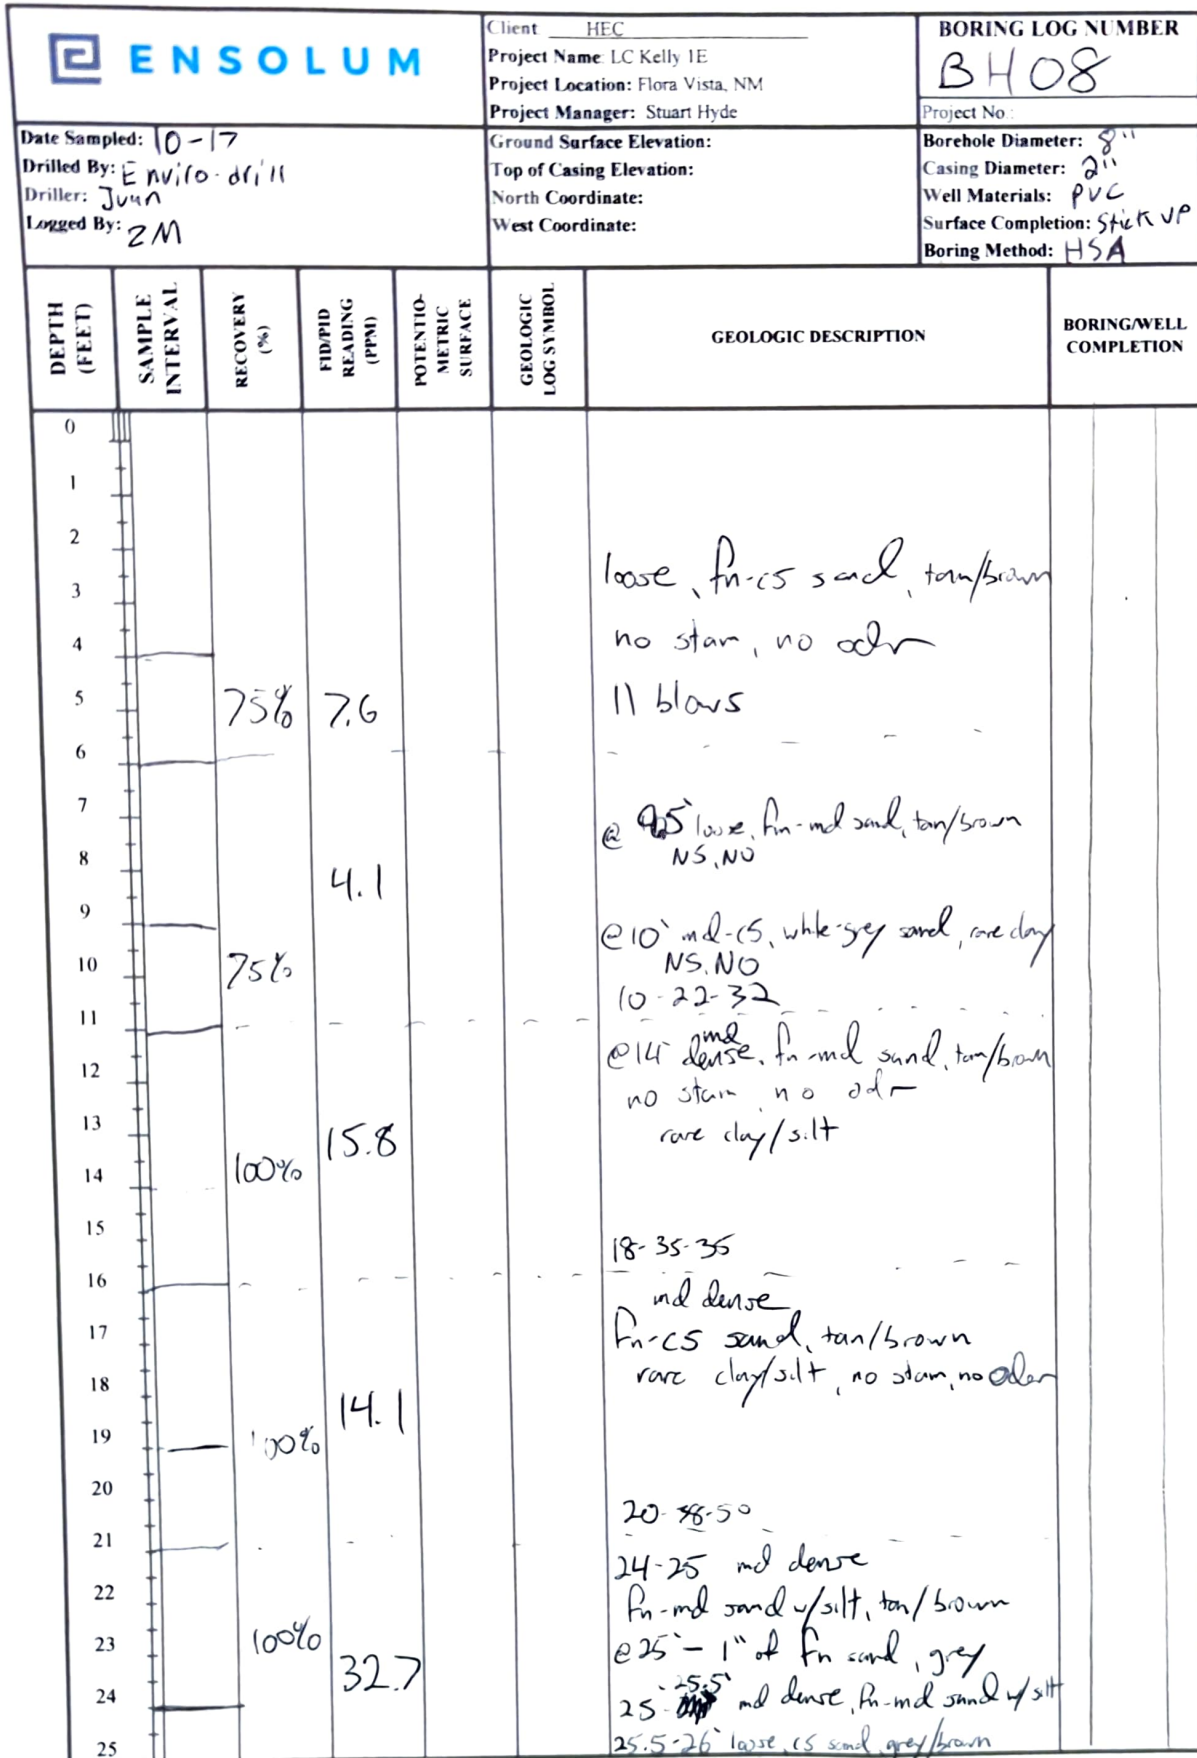 ENSOLUM
Client HEC
Project Name: LC Kelly 1E
Project Location: Flora Vista, NM
Project Manager: Stuart Hyde
BORING LOG NUMBER
BH08
Project No.:
Date Sampled: 10-17
Drilled By: Enviro-drill
Driller: Juan
Logged By: ZM
Ground Surface Elevation:
Top of Casing Elevation:
North Coordinate:
West Coordinate:
Borehole Diameter: 8"
Casing Diameter: 2"
Well Materials: PVC
Surface Completion: Stick UP
Boring Method: HSA
DEPTH (FEET)
SAMPLE INTERVAL
RECOVERY (%)
FID/PID READING (PPM)
POTENTIO-METRIC SURFACE
GEOLOGIC LOG SYMBOL
GEOLOGIC DESCRIPTION
BORING/WELL COMPLETION
0
1
2
loose, fn-cs sand, tan/brown
3
4
no stain, no odor
5
75% 7.6
11 blows
6
7
@ 9.5' loose, fn-md sand, tan/brown
NS, NO
8
4.1
9
@10' md-cs, white-grey sand, rare clay
10
75%
NS, NO
10-22-32
11
@14' md dense, fn-md sand, tan/brown
12
no stain no odor
13
15.8
rare clay/silt
14
100%
15
18-35-35
16
md dense
17
fn-cs sand, tan/brown
rare clay/silt, no stain, no odor
18
14.1
19
100%
20
20-38-50
21
24-25 md dense
22
fn-md sand w/silt, tan/brown
23
100%
@25' - 1" of fn sand, grey
32.7
24
25-25.5' md dense, fn-md sand w/ silt
25
25.5-26' loose, cs sand, grey/brown